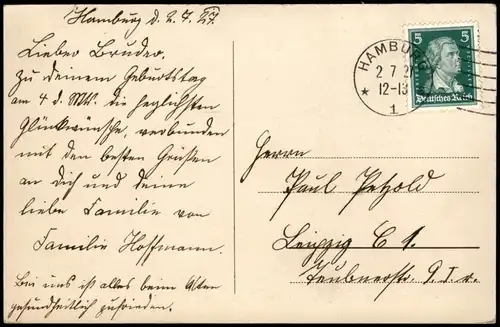 Hamburg d. 2. 7. 27.
Lieber Bruder.
Zu deinem Geburtstag
am 4 d. Mts. die herzlichsten
Glückwünsche, verbunden
mit den besten Grüßen
an dich und deine
liebe Familie von
Familie Hoffmann.
Bei uns ist alles beim Alten
gesundheitlich zufrieden.
HAMBU
2 7 2
12-13
1
5 5
Deutsches Reich
Herrn
Paul Petzold
Leipzig C 1.
Teubnerstr. 9. I. r.